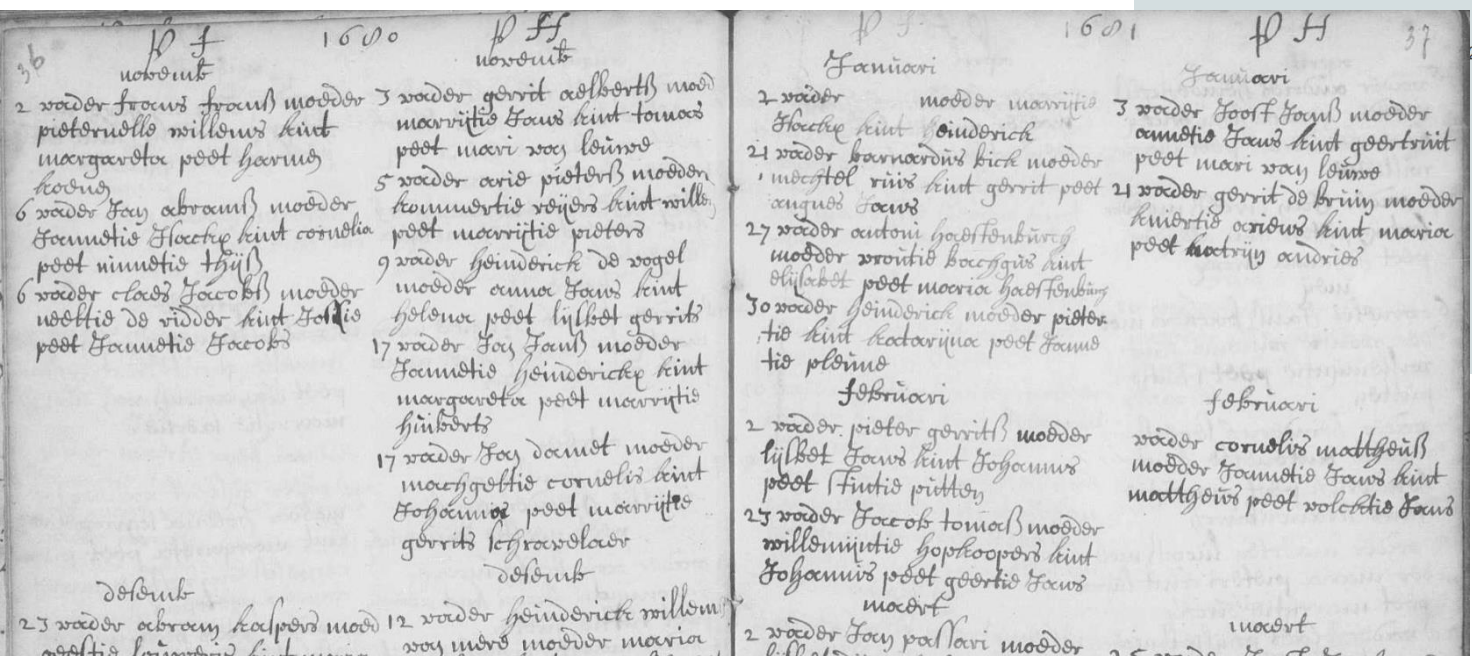 36
P J
1680
novemb
2 vader frans franß moeder
pieternelle willems kint
margareta peet harmen
koenen
6 vader Jan abramß moeder
Jannetie Jsackx kint cornelia
peet ninnetie thijß
6 vader claes Jacobß moeder
neeltie de ridder kint
peet Jannetie Jacobs
desemb
23 vader abram kaspers moed
P H
novemb
3 vader gerrit aelbertß moed
marrijtie Jans kint tomas
peet mari van leuwe
5 vader arie pieterß moeder
kommertie reijers kint willem
peet marrijtie pieters
9 vader heinderick de vogel
moeder anna Jans kint
helena peet lijsbet gerrits
17 vader Jan Janß moeder
Jannetie heinderickx kint
margareta peet marrijtie
huiberts
17 vader Jan damet moeder
machgeltie cornelis kint
Johannes peet marrijtie
gerrits schravelaer
desemb
12 vader heinderick willem
van mere moeder maria
P J
1681
Januari
2 vader moeder marrijtie
Jsackx kint heinderick
21 vader barnardus bick moeder
mechtel ruis kint gerrit peet
angnes Jans
27 vader antoni haestenburch
moeder vroutie bachgus kint
elijsabet peet maria haestenburg
30 vader heinderick moeder pieter
tie kint katarijna peet Janne
tie pleune
februari
2 vader pieter gerritß moeder
lijsbet Jans kint Johannis
peet stintie putten
23 vader Jacob tomaß moeder
willemijntie hopkoopers kint
Johannis peet geertie Jans
maert
2 vader Jan passari moeder
P H
37
Januari
3 vader Joost Janß moeder
annetie Jans kint geertruit
peet mari van leuwe
21 vader gerrit de bruin moeder
kniertie ariens kint maria
peet katrijn andries
februari
vader cornelis mattheuß
moeder Jannetie Jans kint
mattheus peet volcktie Jans
maert